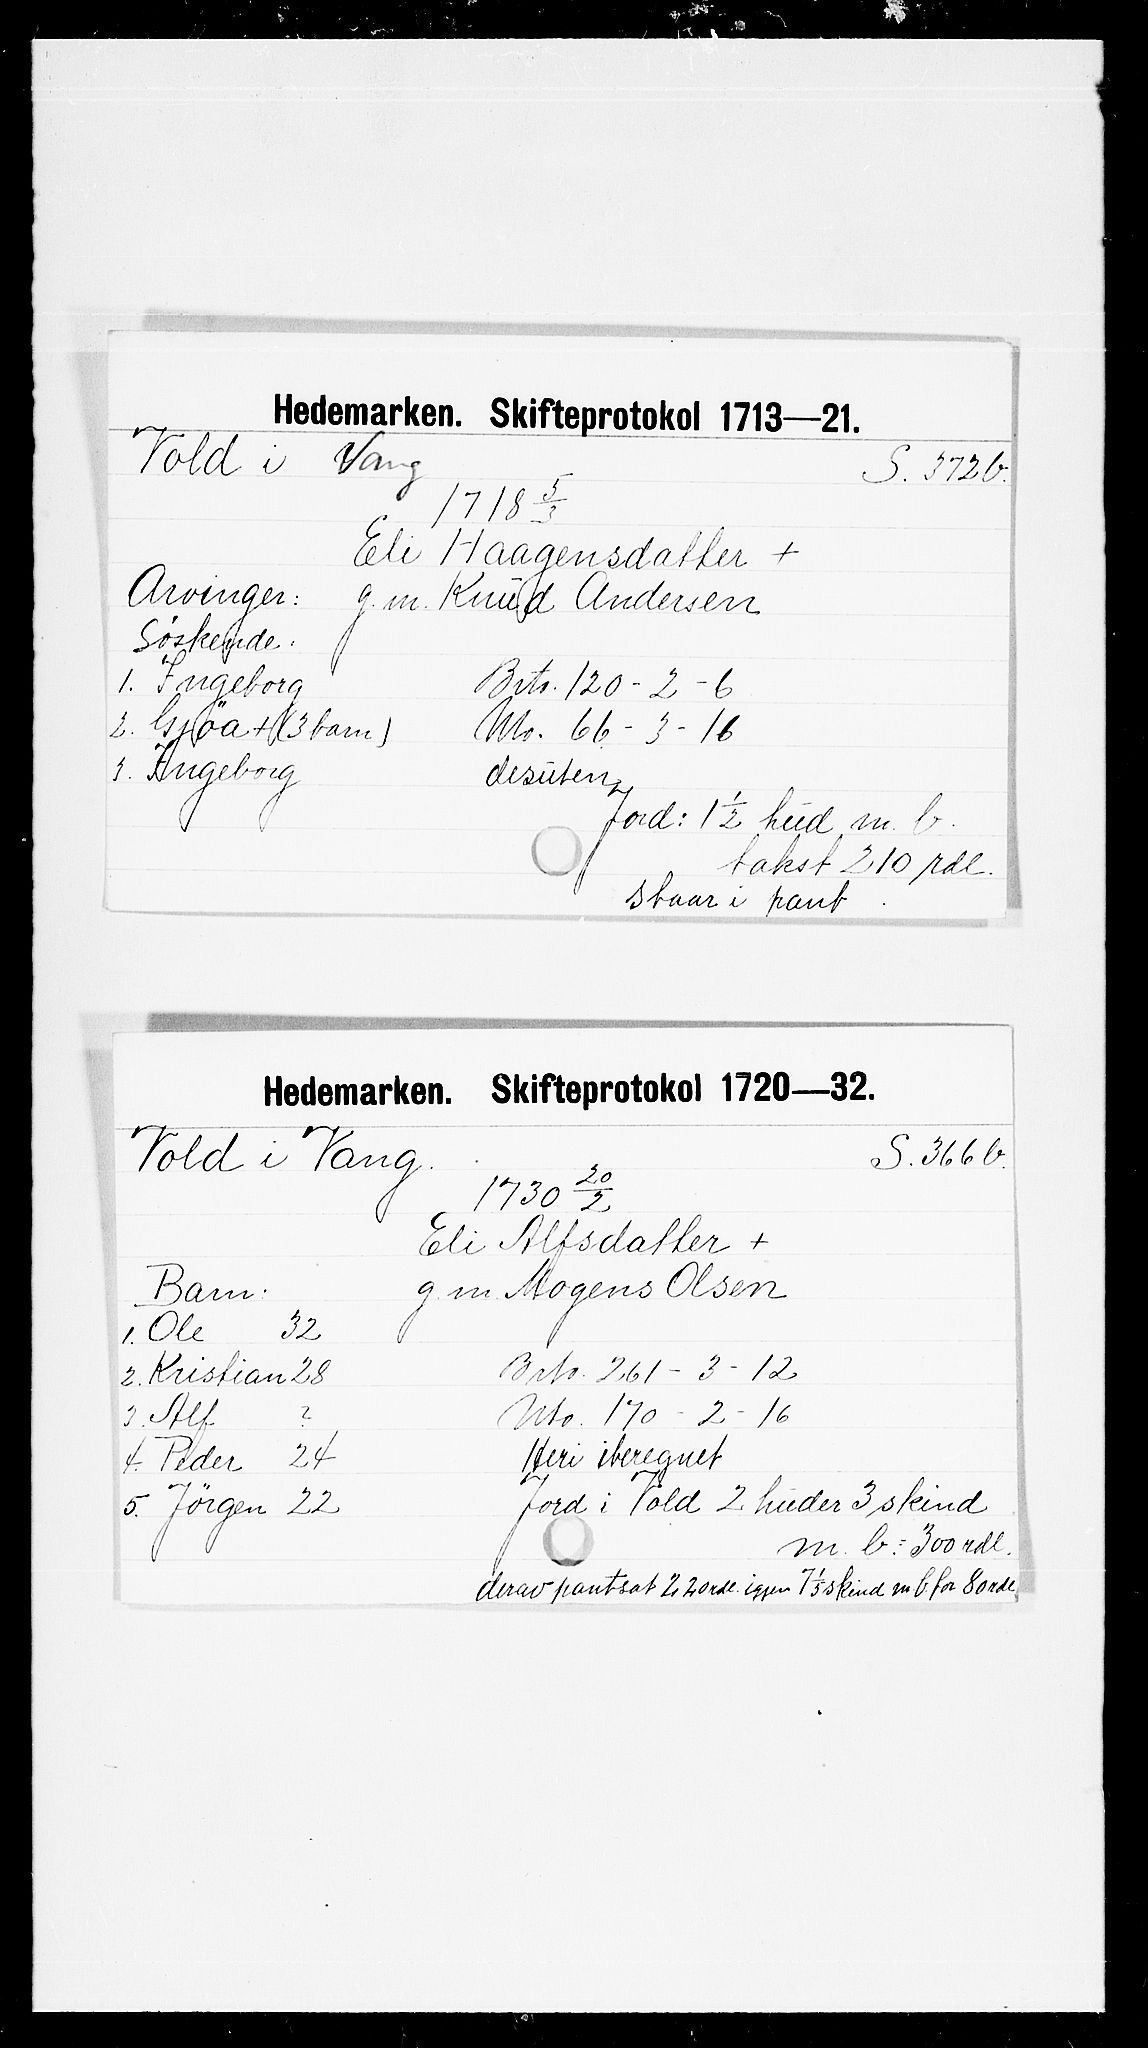 Hedemarken. Skifteprotokol 1713—21.
Vold i Vang S. 372 b.
1718 5/3
Eli Haagensdatter +
Arvinger: g. m. Knud Andersen
Söskende:
1. Ingeborg Brto. 120 - 2 - 6
2. Gjöa + (3 barn) Nto. 66 - 3 - 16
3. Ingeborg desuten
Jord: 1 1/2 hud m. b.
takst 210 rdl.
staar i pant
Hedemarken. Skifteprotokol 1720—32.
Vold i Vang. S. 366 b.
1730 20/2
Eli Alfsdatter +
Barn: g. m. Mogens Olsen
1. Ole 32
2. Kristian 28 Brto. 261 - 3 - 12
3. Alf ? Nto. 170 - 2 - 16
4. Peder 24 Heri iberegnet
5. Jörgen 22 Jord i Vold 2 huder 3 skind
m. b. = 300 rdl.
derav pantsat 220 rdl. igjen 7 1/5 skind m b for 80 rdl.